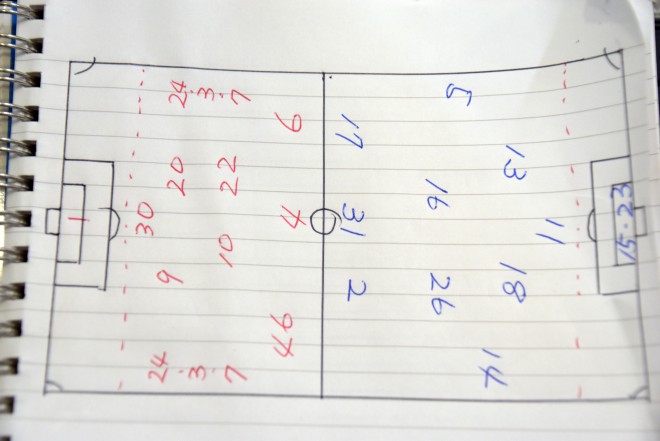 24.3.7
6
17
5
20
22
16
13
1
30
4
31
11
15.23
9
10
2
26
18
46
24.3.7
14